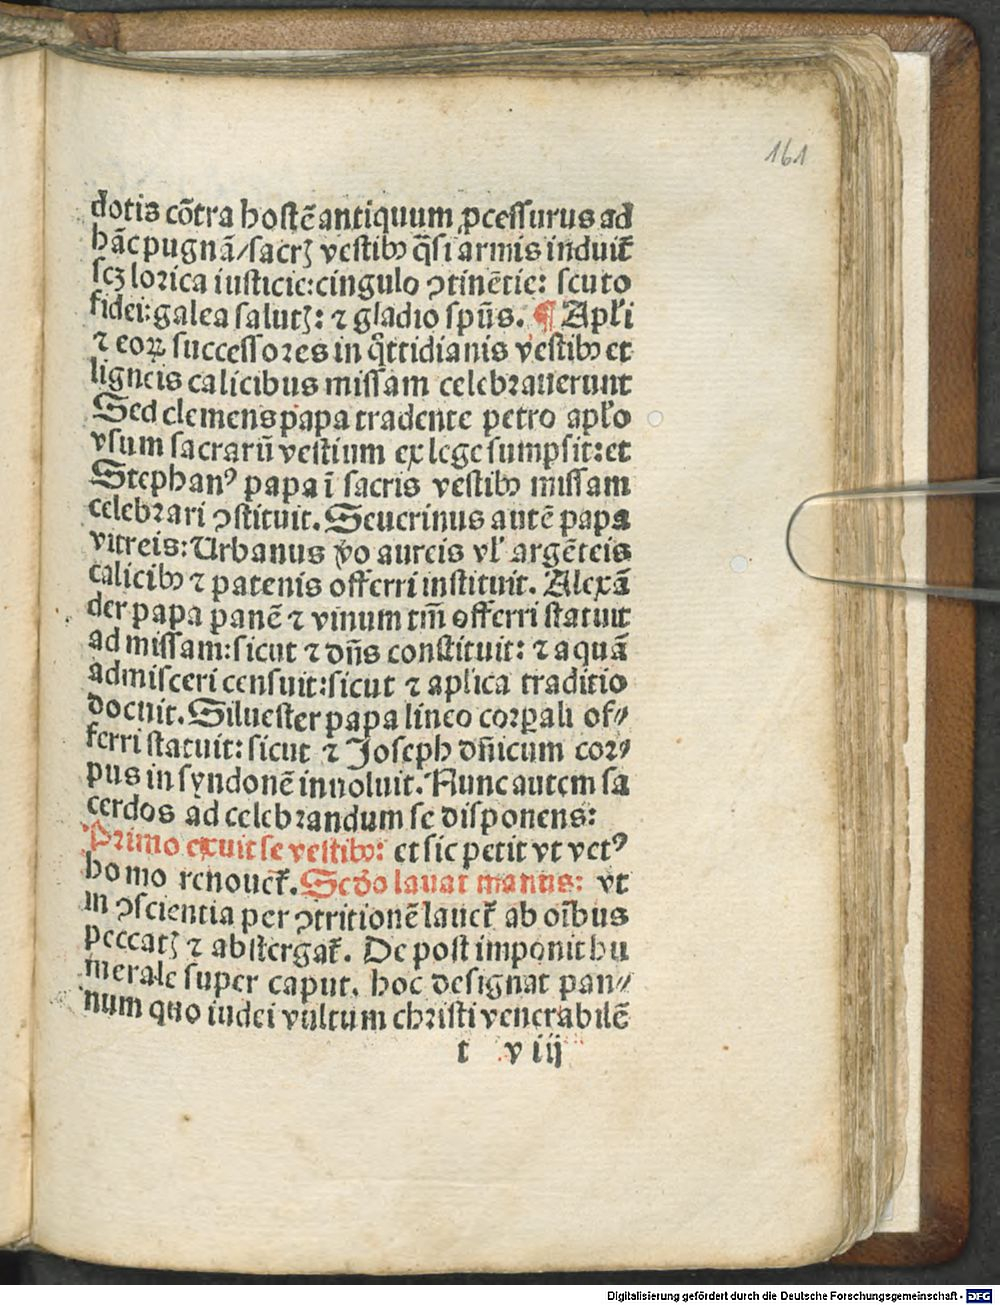 161
dotis cõtra hostẽ antiquum ꝓcessurus ad
hãc pugnã/sacrꝫ vestibꝫ q̃si armis induit᷑
scꝫ lorica iusticie:cingulo ꝯtinẽtie: scuto
fidei:galea salutꝫ: ⁊ gladio spũs. ¶ Apl'i
⁊ eoꝝ successores in q̊ttidianis vestibꝫ et
ligneis calicibus missam celebrauerunt
Sed clemens papa tradente petro apl'o
vsum sacrarũ vestium ex lege sumpsit:et
Stephanꝰ papa ĩ sacris vestibꝫ missam
celebrari ꝯstituit. Seuerinus autẽ papa
vitreis: Urbanus ṽo aureis vl' argẽteis
calicibꝫ ⁊ patenis offerri instituit. Alexã
der papa panẽ ⁊ vinum tm̃ offerri statuit
ad missam:sicut ⁊ dñs constituit: ⁊ aquã
admisceri censuit:sicut ⁊ aplica traditio
docuit. Siluester papa lineo corꝑali of⸗
ferri statuit: sicut ⁊ Joseph dñicum cor⸗
pus in syndonẽ inuoluit. Nunc autem sa
cerdos ad celebrandum se disponens:
Primo exuit se vestibꝫ: et sic petit vt vetꝰ
homo renouet᷑. Scdo lauat manus: vt
in ꝯscientia per ꝯtritionẽ lauet᷑ ab oĩbus
peccatꝫ ⁊ abstergat᷑. De post imponit hu
merale super caput. hoc designat pan⸗
num quo iudei vultum christi venerabilẽ
t viij
Digitalisierung gefördert durch die Deutsche Forschungsgemeinschaft - DFG